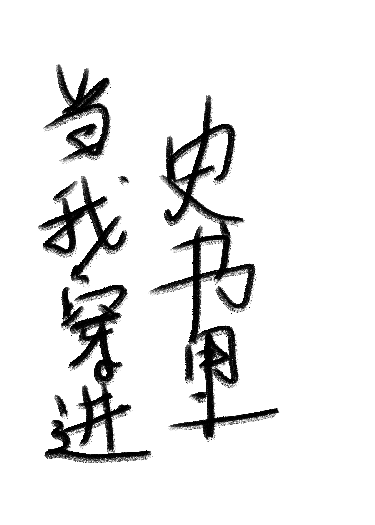 当我穿进
史书里